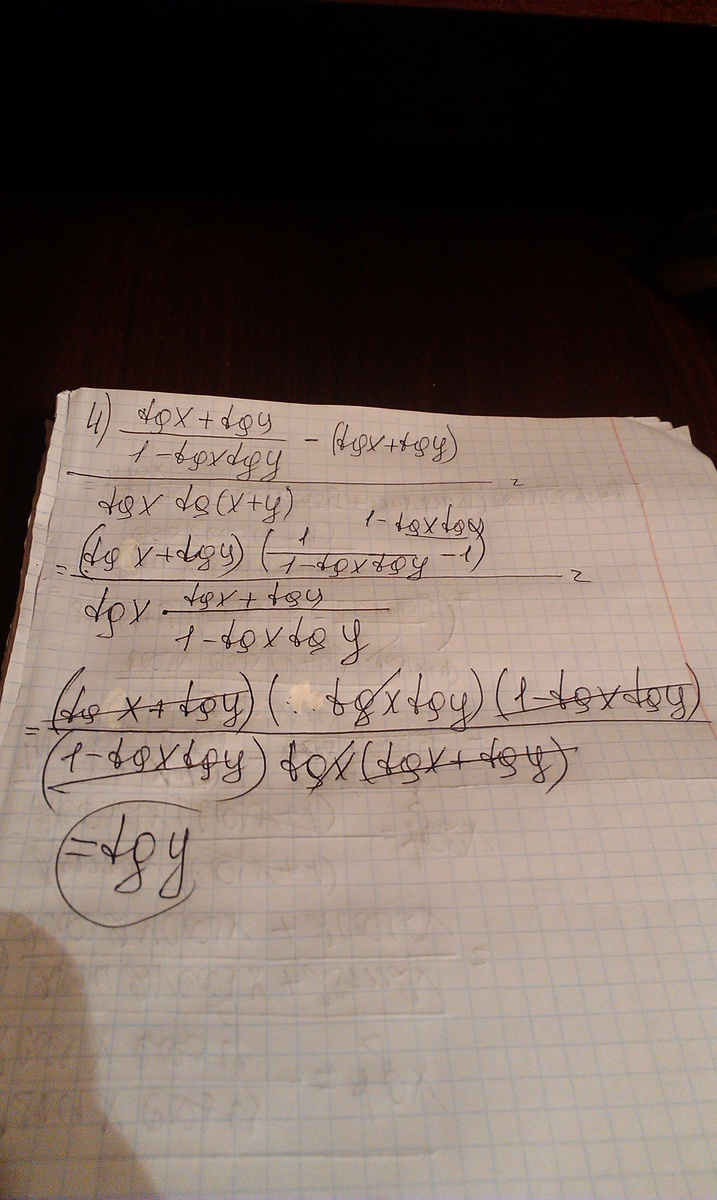 4) tgx + tgy
1 - tgxtgy
- (tgx+tgy)
=
tgx tg(x+y)
= (tg x + tgy) (1 / 1 - tgxtgy - 1) 1 - tgxtgy
=
tgx · tgx + tgy
1 - tgx tg y
= (tg x + tgy) ( tgx tgy) (1 - tgx tgy)
(1 - tgx tgy) tgx (tgx + tg y)
= tg y